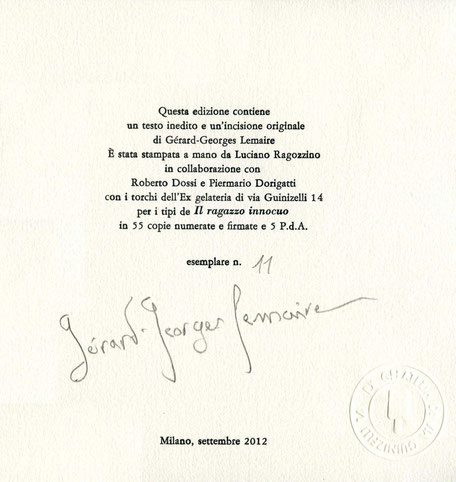 Questa edizione contiene
un testo inedito e un'incisione originale
di Gérard-Georges Lemaire
È stata stampata a mano da Luciano Ragozzino
in collaborazione con
Roberto Dossi e Piermario Dorigatti
con i torchi dell'Ex gelateria di via Guinizelli 14
per i tipi de Il ragazzo innocuo
in 55 copie numerate e firmate e 5 P.d.A.
esemplare n. 11
Gérard-Georges Lemaire
Milano, settembre 2012